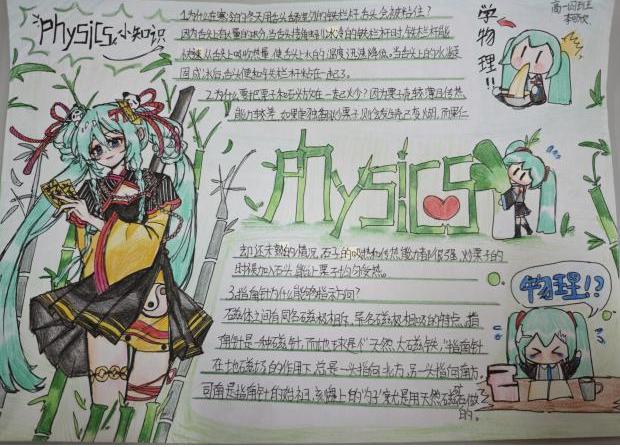 Physics 小知识
1.为什么在寒冷的冬天用舌头舔室外的铁栏杆舌头会被粘住?
因为舌头上有大量的水分,当舌头接触到冰冷的铁栏杆时,铁栏杆能
快速从舌头上吸收热量,使舌头上水的温度迅速降低。当舌头上的水凝
固成冰后,舌头便和铁栏杆粘在一起了。
2.为什么要把栗子和石头放在一起炒?因为栗子壳较薄且传热
能力较差,如果单独翻炒栗子,则会发生壳已发糊,而果仁
Physics
却还未熟的情况,石子的吸热和传热能力都很强,炒栗子的
时候加入石头,能让栗子均匀受热。
3.指南针为什么能够指示方向?
磁体之间有同名磁极相斥,异名磁极相吸的特点,指
南针是一种磁针,而地球是个天然大磁铁,指南针
在地磁场的作用下,总是一头指向北方,另一头指向南方,
司南是指南针的始祖,司南上的“勺子”就是用天然磁石做
的。
学物理!!
物理!?